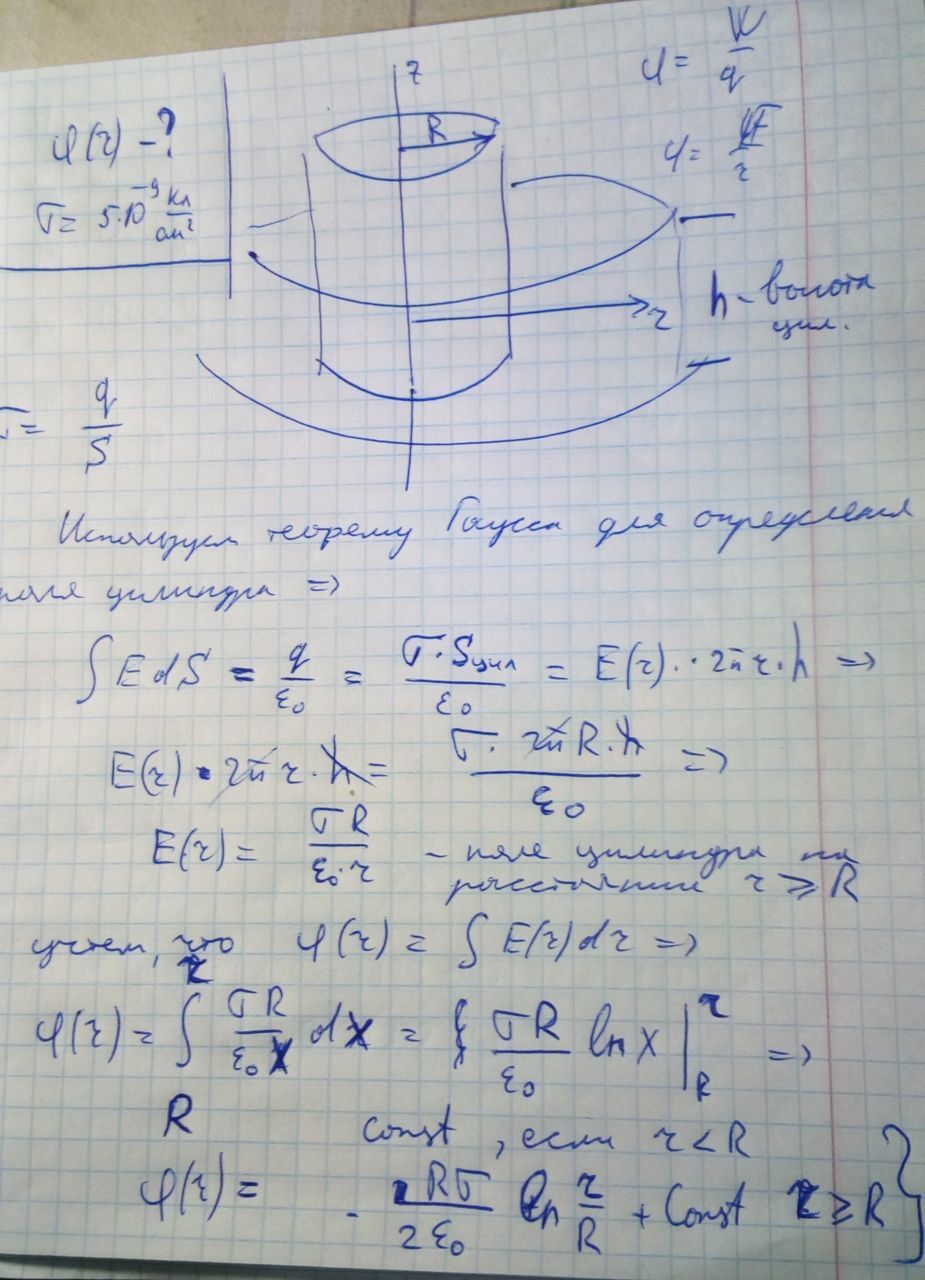 φ(r) - ?
σ = 5·10⁻⁹ Кл/см²
z
R
φ = W/q
φ =
r
h - высота
цил.
σ = q/S
Используем теорему Гаусса для определения
поля цилиндра =>
∫ E dS = q/ε₀ = σ·Sцил/ε₀ = E(r)··2πr·h =>
E(r)·2πr·h = σ·2πR·h/ε₀ =>
E(r) = σR/ε₀·r - поле цилиндра на
расстоянии r ≥ R
учтем, что φ(r) = ∫ E(r)dr =>
φ(r) = ∫ᵣ σR/ε₀x dx = σR/ε₀ ln x |ʳ_R =>
R
const, если r < R
φ(r) = - Rσ/2ε₀ ln r/R + Const r ≥ R }